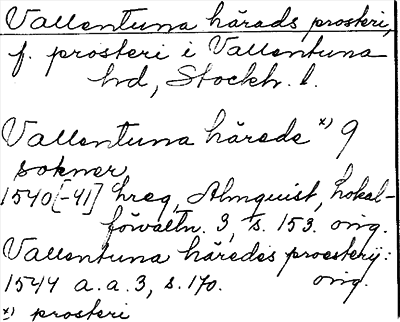 Vallentuna härads prosteri,
f. prosteri i Vallentuna
hd, Stockh. l.
Vallentuna härede x) 9
sokner
1540[-41] hreg, Almquist, Lokal-
förvaltn. 3, s. 153. orig.
Vallentuna häredes proesterij:
1544 a.a. 3, s. 170. orig.
x) prosteri